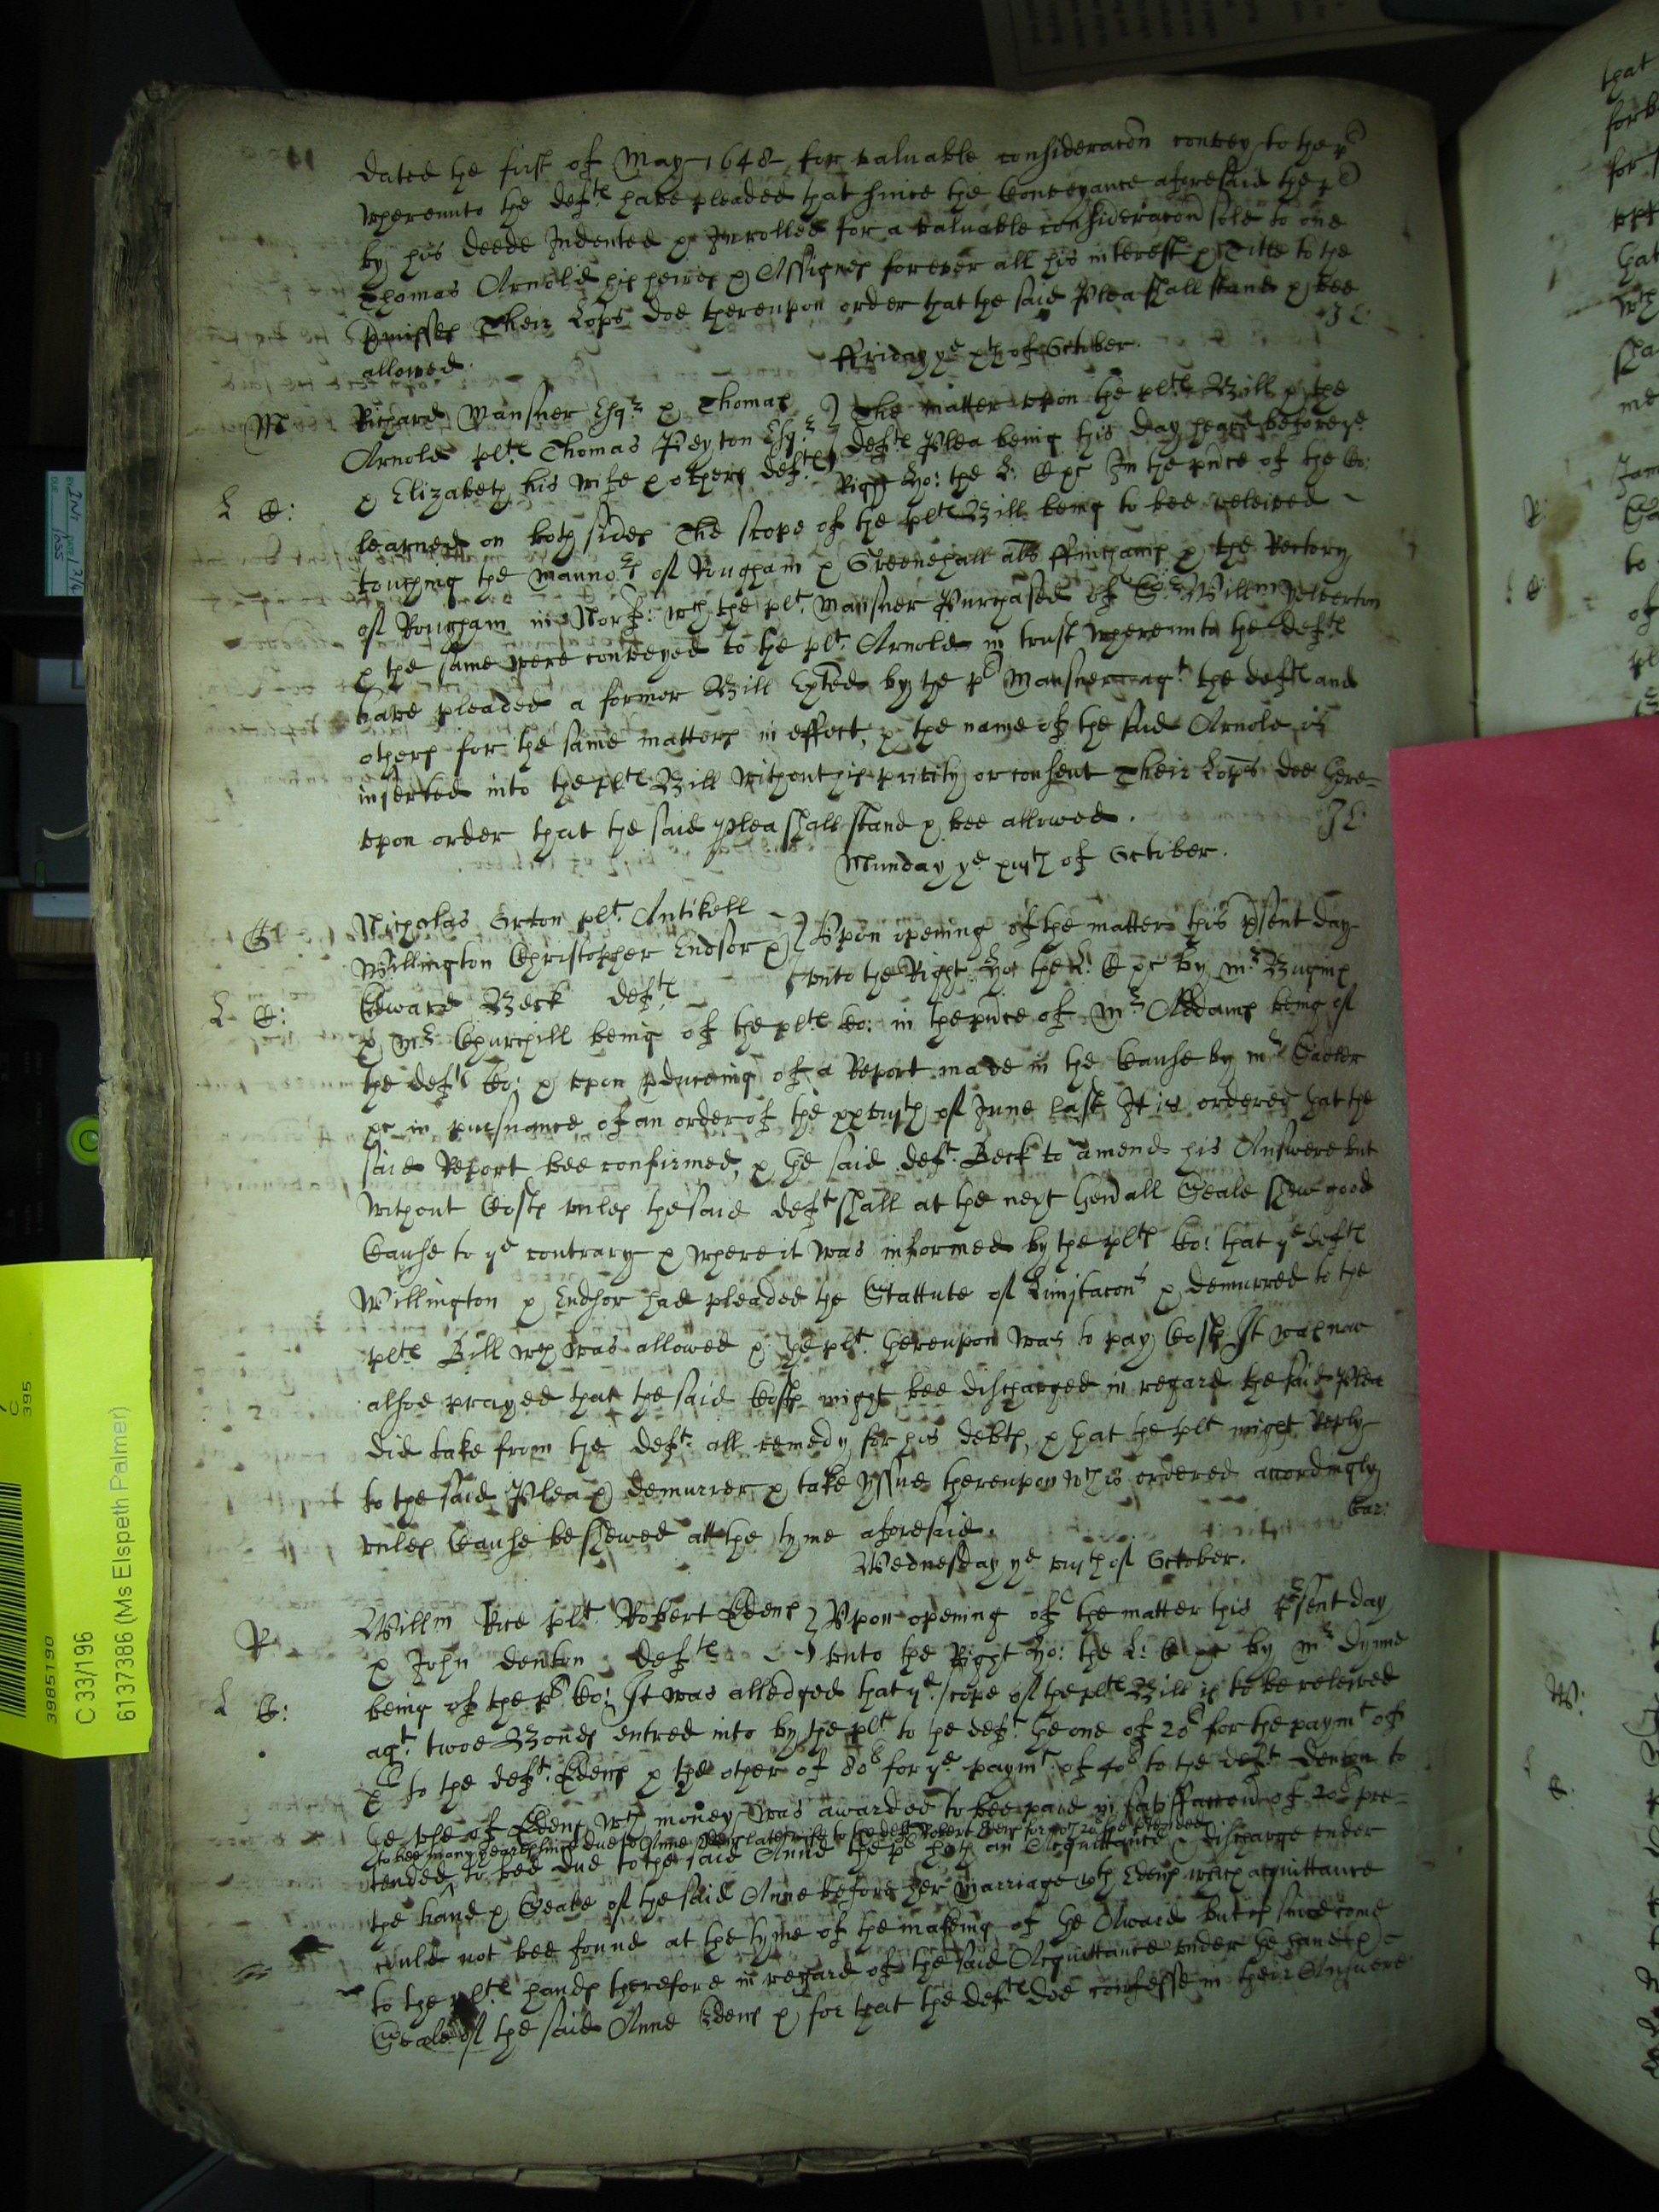 dated the first of May 1648 for valuable consideracon convey to the p
whereunto the deftes have pleaded that since the Conveyance aforesaid the p
by his deede Indented & Inrolled for a valuable consideracon sold to one
Thomas Arnold his heires & Assignes forever all his interest & Title to the
pmisses Their Lopps doe thereupon order that the said Plea shall stand & bee
allowed.
ffriday ye xth of October.
M
Richard Mansner Esqr & Thomas } The matter upon the pltes Bill & the
Arnold pltes Thomas Peyton Esqr } deftes Plea being this day heard before ye
L C:
& Elizabeth his wife & others deftes } Right Ho: the L: C &c In the pnce of the Co:
learned on both sides The scope of the pltes Bill being to bee releived
touching the mannors of Rougham & Greenehall als ffinchams & the Rectory
of Rougham in Norf: wch the plt Mansner Purchased of Sr Willm Yelverton
& the same were conveyed to the plt Arnold in trust whereunto the deftes
have pleaded a former Bill Exhted by the p Mansner agt the deftes and
others for the same matters in effect, & the name of the said Arnold is
inserted into the pltes Bill without his privity or consent Their Lopps doe here=
upon order that the said plea shall stand & bee allowed.
Munday ye xiijth of October.
Nicholas Orton plt Antikell
Willington Christopher Endsor & } Upon opening of the matter this psent day
L C:
Edward Beck deftes } unto the Right Ho: the L: C &c by mr Buggins
& mr Churchill being of the pltes Co: in the pnce of mr Addams being of
the deftes Co: & upon pduceing of a Report made in the Cause by mr Eadler
&c in pursuance of an order of the xxviijth of June last It is ordered that the
said Report bee confirmed, & the said deft Beck to amend his Answere but
without Costs unles the said deft shall at the next Genall Seale shew good
Cause to ye contrary & where it was informed by the pltes Co: that ye deftes
Willington & Endsor had pleaded the Stattute of Limitacons & demurred to the
pltes Bill wch was allowed & the plt thereupon was to pay Costs It was now
alsoe prayed that the said Costs might bee discharged in regard the said Plea
did take from the deft all remedy for his debts, & that the plt might Reply
to the said Plea & demurrer & take Issue thereupon wch is ordered accordingly
unles Cause be shewed att the tyme aforesaid.
Wednesday ye viijth of October.
R
Willm Rice plt Robert Edens } Upon opening of the matter this psent day
& John Denton deftes } unto the Right Ho: the L: C &c by mr Dynne
L C:
being of the ps Co: It was alledged that ye scope of the pltes Bill is to be releived
agt twoe Bonds entred into by the plt to the deft the one of 20l for the paymt of
xl to the deft Edens & the other of 80l for ye paymt of 40l to the deft Denton to
the use of Edens wch money was awarded to bee paid in satisfaccon of 20l pre=
to bee many yeares since due to Anne Edens late wife to the deft Robert Edens for wch 20l hee ptended
tended to bee due to the said Anne the ps hath an Acquittance & discharge under
the hand & Seale of the said Anne before her marriage wth Edens which acquittance
could not bee found at the tyme of the makeing of the Award but is since come
to the pltes hands therefore in regard of the said Acquittance under the hand &
Seale of the said Anne Edens & for that the deftes doe confesse in their Answere
3985190
C 33/196
6137386 (Ms Elspeth Palmer)
C
395